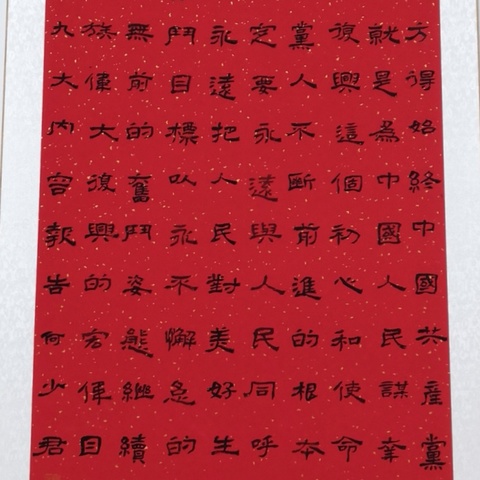 方得始終中國共産黨
就是為中國人民謀幸
復興這個初心和使命
黨人不斷前進的根本
定要永遠與人民同呼
永遠把人民對美好生
鬥目標以永不懈怠的
無前的奮鬥姿態繼續
族偉大復興的宏偉目
九大内容報告何少君